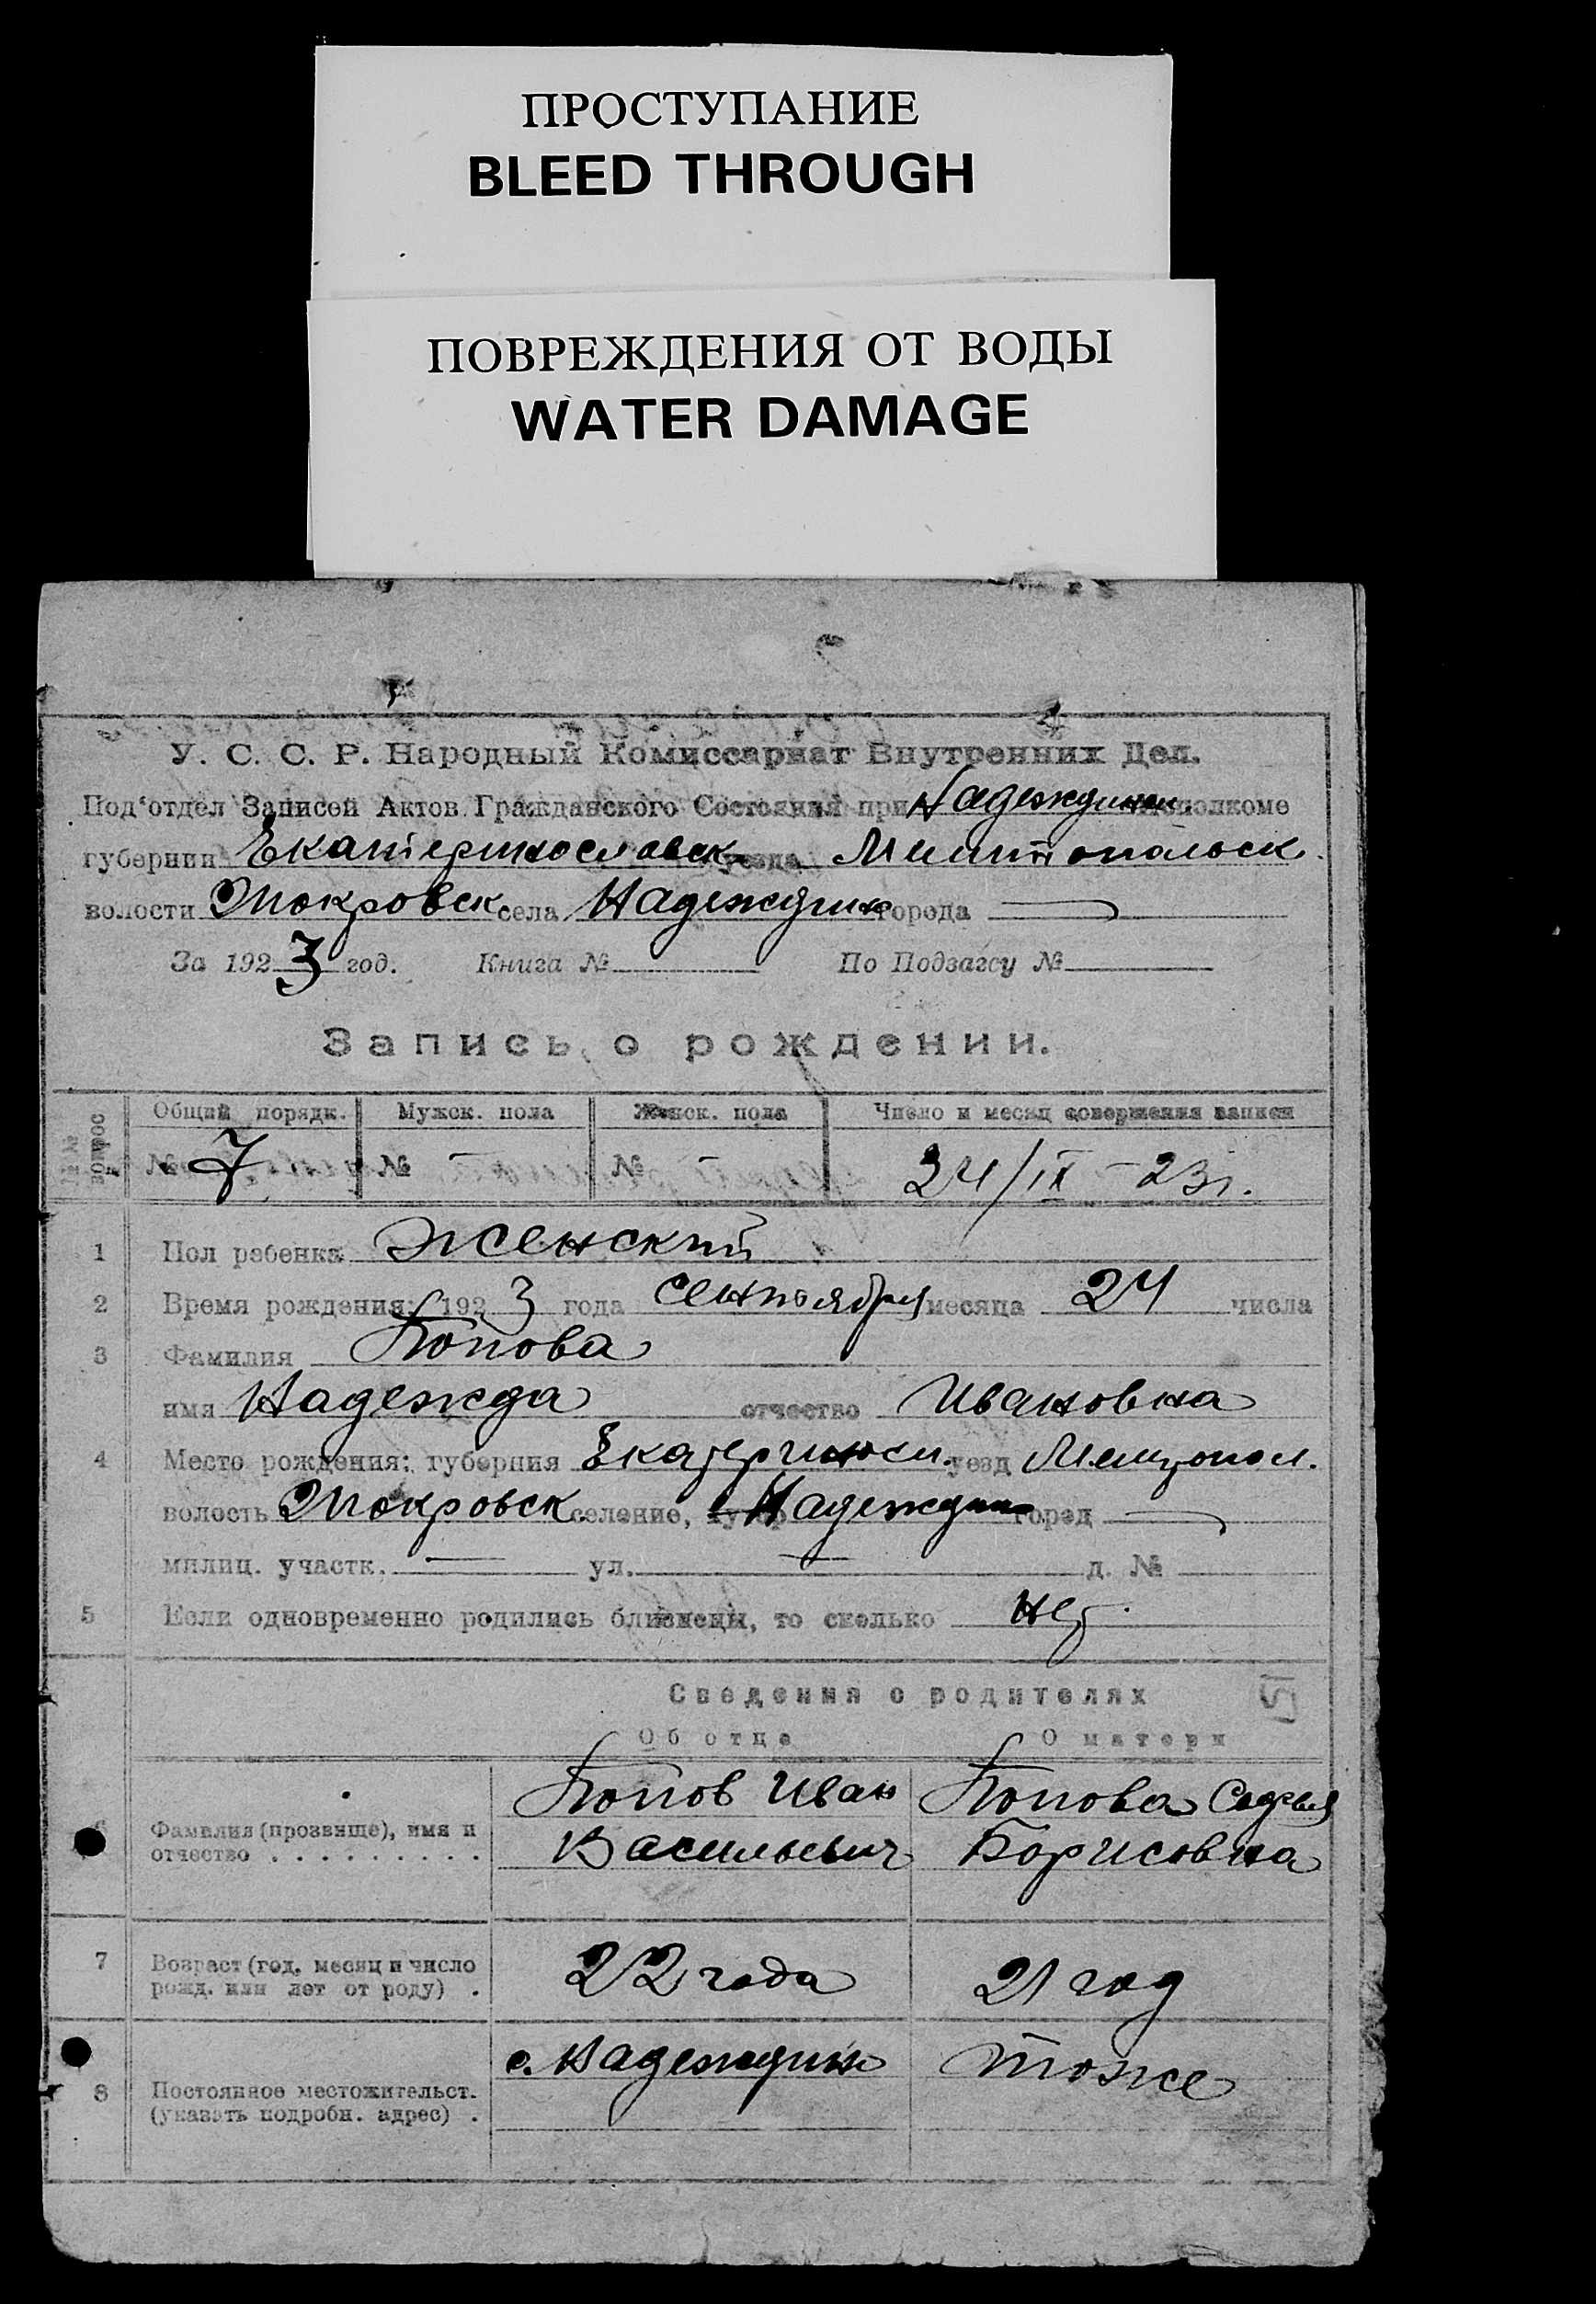 ПРОСТУПАНИЕ
BLEED THROUGH
ПОВРЕЖДЕНИЯ ОТ ВОДЫ
WATER DAMAGE
У. С. С. Р. Народный Комиссариат Внутренних Дел.
Под'отдел Записей Актов Гражданского Состояния при Надеждинск. исполкоме
губернии Екатеринославск. уезда
волости Покровск. села Надеждин города —
За 1923 год. Книга № По Подзагсу №
Запись о рождении.
№№ вопрос
Общий порядк. Мужск. пола Женск. пола Число и месяц совершения записи
№ 7 № – № – 24/IX – 23г.
1 Пол ребенка Женский
2 Время рождения: 1923 года сентября месяца 24 числа
3 Фамилия Попова
имя Надежда отчество Ивановна
4 Место рождения: губерния Екатериносл. уезд Мелитопол.
волость Покровск. селение, хутор Надеждин город —
милиц. участк. — ул. — д. №
5 Если одновременно родились близнецы, то сколько нет.
Сведения о родителях
Об отце О матери
Попов Иван Попова Софья
6 Фамилия (прозвище), имя и
отчество . . . . . . . . . Васильевич Борисовна
7 Возраст (год, месяц и число
рожд. или лет от роду) . 22 года 21 год
с. Надеждин тоже
8 Постоянное местожительст.
(указать подробн. адрес) .